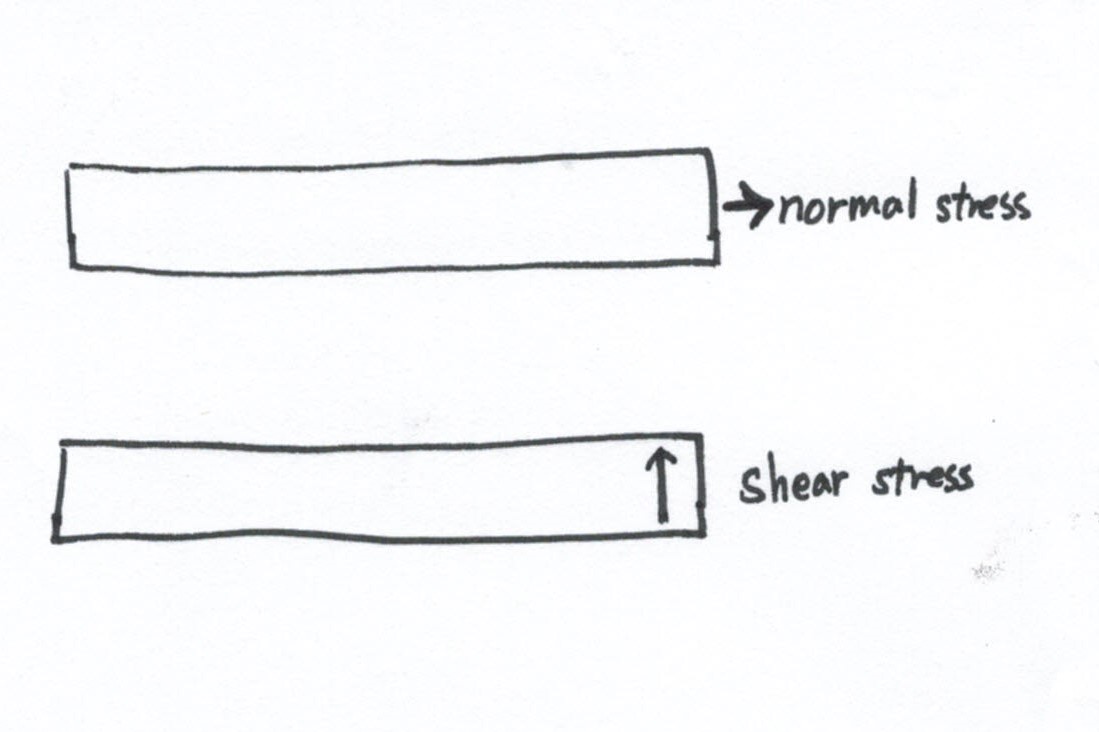 normal stress
shear stress